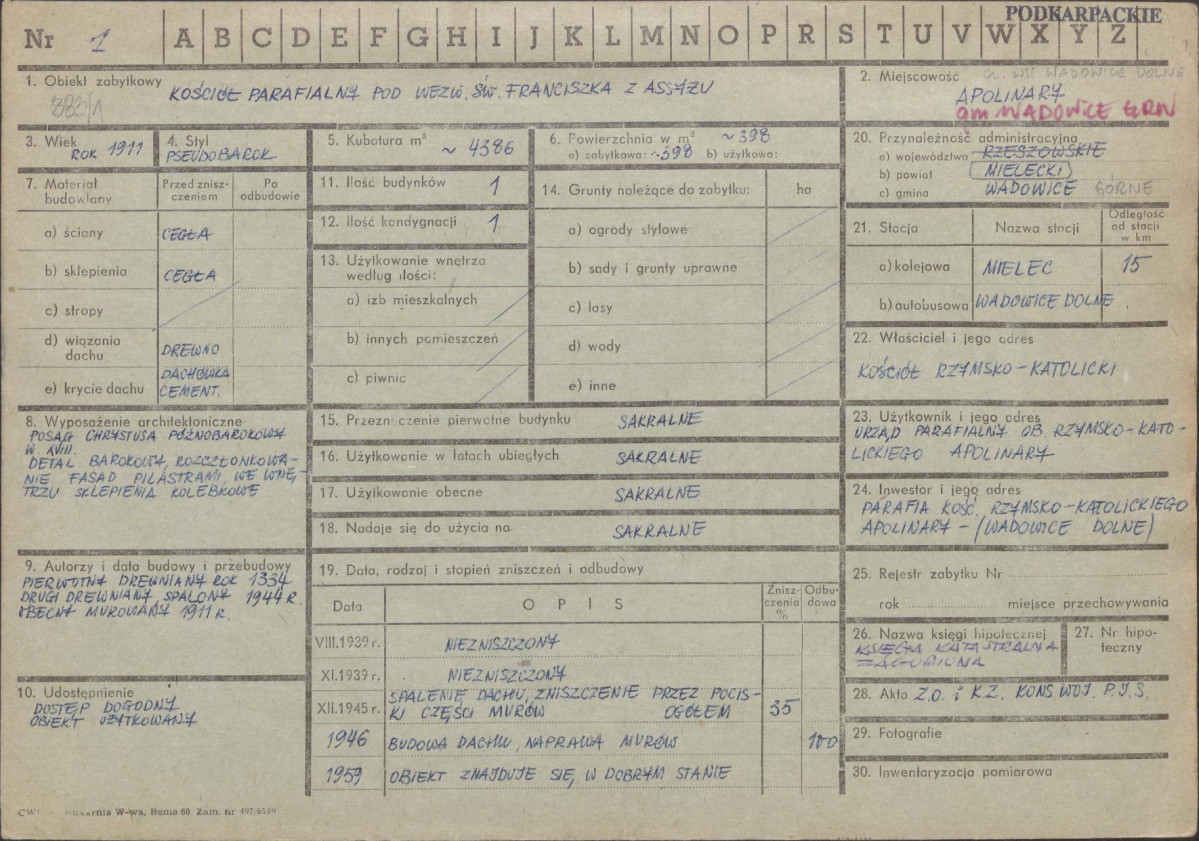 PODKARPACKIE
Nr 1 A B C D E F G H I J K L M N O P R S T U V W X Y Z
1. Obiekt zabytkowy
883/1
KOŚCIÓŁ PARAFIALNY POD WEZW. ŚW. FRANCISZKA Z ASSYŻU
2. Miejscowość
WSI WADOWICE DOLNE
APOLINARY
gm WADOWICE GRN
3. Wiek
ROK 1911
4. Styl
PSEUDOBAROK
5. Kubatura m³
~ 4386
6. Powierzchnia w m² ~398
a) zabytkowa: ~398 b) użytkowa:
7. Materiał budowlany
Przed znisz-
czeniem
Po
odbudowie
a) ściany CEGŁA
b) sklepienia CEGŁA
c) stropy
d) wiązania
dachu DREWNO
e) krycie dachu DACHÓWKA
CEMENT.
11. Ilość budynków 1
12. Ilość kondygnacji 1
13. Użytkowanie wnętrza
według ilości:
a) izb mieszkalnych
b) innych pomieszczeń
c) piwnic
14. Grunty należące do zabytku: ha
a) ogrody stylowe
b) sady i grunty uprawne
c) lasy
d) wody
e) inne
20. Przynależność administracyjna
a) województwo RZESZOWSKIE
b) powiat MIELECKI
c) gmina WADOWICE GÓRNE
21. Stacja
Nazwa stacji
Odległość
od stacji
w km
a) kolejowa MIELEC 15
b) autobusowa WADOWICE DOLNE .
22. Właściciel i jego adres
KOŚCIÓŁ RZYMSKO-KATOLICKI
8. Wyposażenie architektoniczne
POSĄG CHRYSTUSA PÓŹNOBAROKOWY
W. XVIII.
DETAL BAROKOWY, ROZCZŁONKOWA-
NIE FASAD PILASTRAMI, WE WNĘ-
TRZU SKLEPIENIA KOLEBKOWE
15. Przeznaczenie pierwotne budynku SAKRALNE
16. Użytkowanie w latach ubiegłych SAKRALNE
17. Użytkowanie obecne SAKRALNE
18. Nadaje się do użycia na SAKRALNE
23. Użytkownik i jego adres
URZĄD PARAFIALNY OB. RZYMSKO-KATO-
LICKIEGO APOLINARY
24. Inwestor i jego adres
PARAFIA KOŚC. RZYMSKO-KATOLICKIEGO
APOLINARY - (WADOWICE DOLNE)
9. Autorzy i data budowy i przebudowy
PIERWOTNY DREWNIANY ROK 1334
DRUGI DREWNIANY, SPALONY 1944 R.
OBECNY MUROWANY 1911 R.
10. Udostępnienie
DOSTĘP DOGODNY
OBIEKT UŻYTKOWANY
19. Data, rodzaj i stopień zniszczeń i odbudowy
Data
O P I S
Znisz-
czenia
%
Odbu-
dowa
VIII.1939 r. NIEZNISZCZONY
XI.1939 r. NIEZNISZCZONY
XII.1945 r. SPALENIE DACHU, ZNISZCZENIE PRZEZ POCIS-
KI CZĘŚCI MURÓW OGÓŁEM 35
1946 BUDOWA DACHU, NAPRAWA MURÓW 100
1959 OBIEKT ZNAJDUJE SIĘ, W DOBRYM STANIE
25. Rejestr zabytku Nr
rok miejsce przechowywania
26. Nazwa księgi hipotecznej
KSIĘGA KATASTRALNA
ZAGUBIONA
27. Nr hipo-
teczny
28. Akta Z.O. i K.Z. KONS WOJ. P.J.S.
29. Fotografie
30. Inwentaryzacja pomiarowa
W-wa, Bema 60 Zam. nr 497/6500